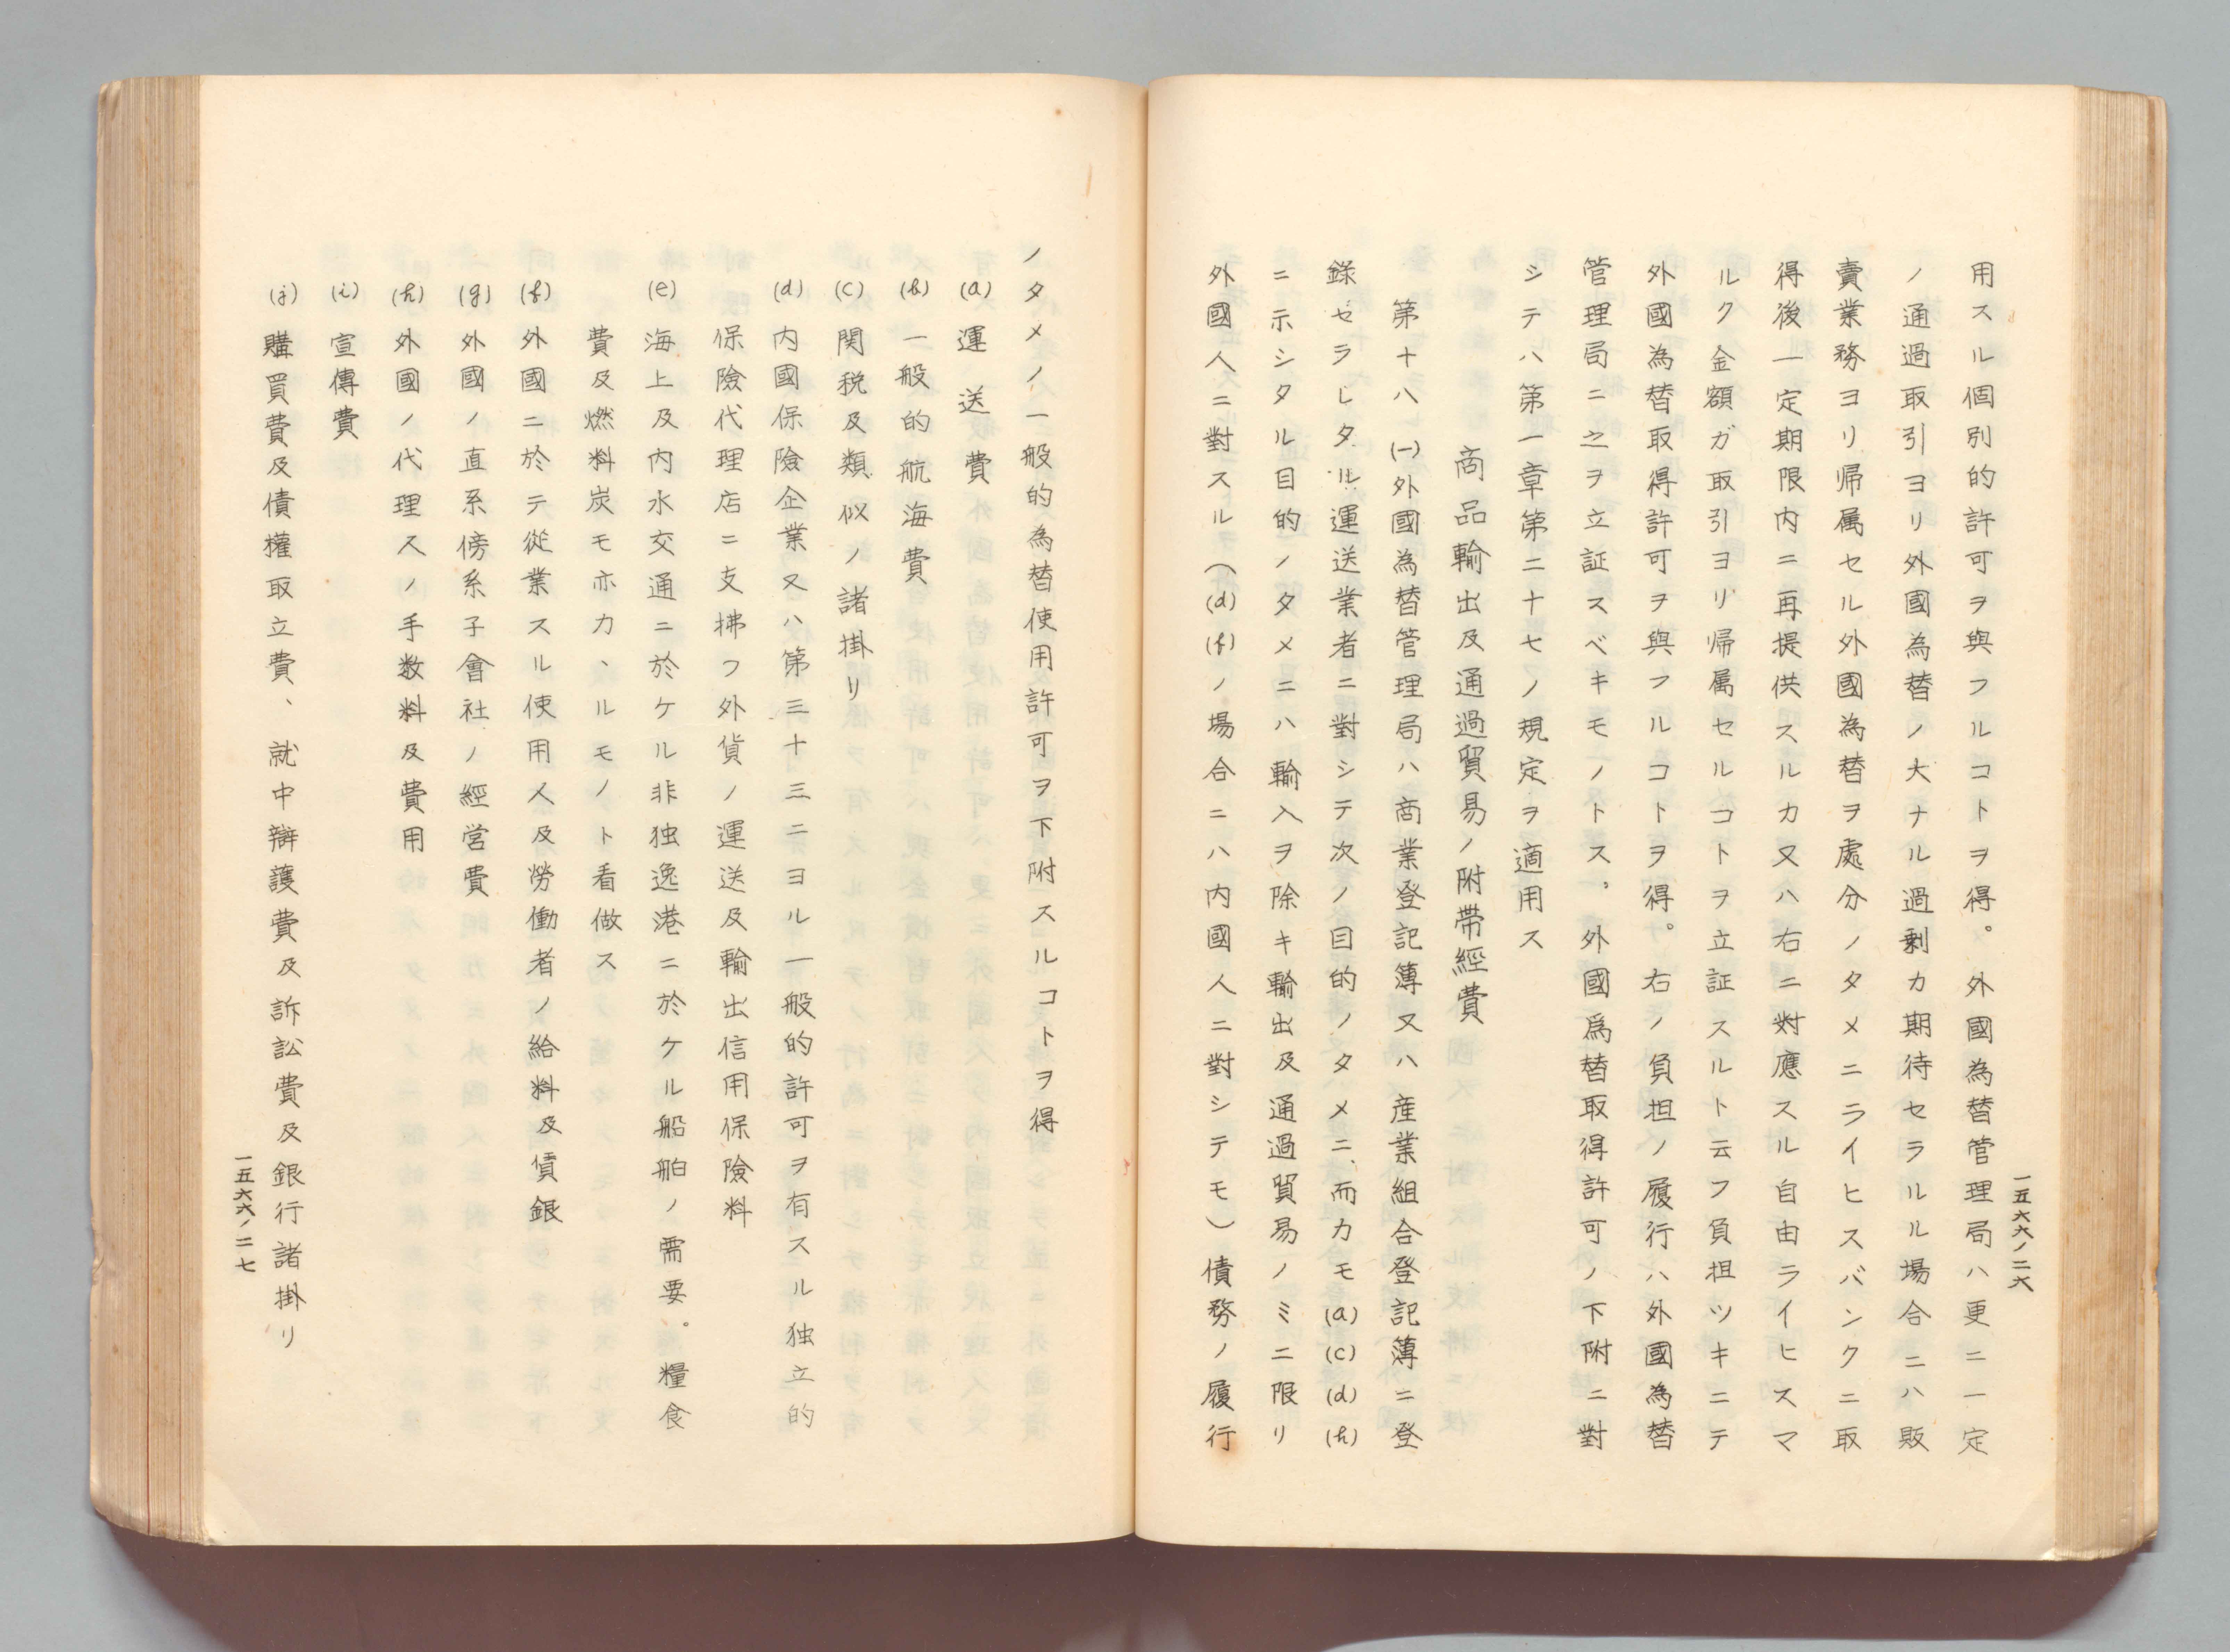 用スル個別的許可ヲ與フルコトヲ得。外國為替管理局ハ更ニ一定
ノ通過取引ヨリ外國為替ノ大ナル過剰カ期待セラルル場合ニハ販
賣業務ヨリ帰属セル外國為替ヲ處分ノタメニライヒスバンクニ取
得後一定期限内ニ再提供スルカ又ハ右ニ対應スル自由ライヒスマ
ルク金額ガ取引ヨリ帰属セルコトヲ立証スルト云フ負担ツキニテ
外國為替取得許可ヲ與フルコトヲ得。右ノ負担ノ履行ハ外國為替
管理局ニ之ヲ立証スベキモノトス。外國爲替取得許可ノ下附ニ對
シテハ第一章第二十七ノ規定ヲ適用ス
商品輸出及通過貿易ノ附帶經費
第十八 (一)外國為替管理局ハ商業登記簿又ハ産業組合登記簿ニ登
錄セラレタル運送業者ニ對シテ次ノ目的ノタメニ、而カモ(a)(c)(d)(h)
ニ示シタル目的ノタメニハ輸入ヲ除キ輸出及通過貿易ノミニ限リ
外國人ニ對スル((d)(f)ノ場合ニハ内國人ニ對シテモ)債務ノ履行
一五六六ノ二六
ノタメノ一般的為替使用許可ヲ下附スルコトヲ得
(a) 運送費
(b) 一般的航海費
(c) 関税及類似ノ諸掛リ
(d) 内國保險企業又ハ第三十三ニヨル一般的許可ヲ有スル独立的
保險代理店ニ支拂フ外貨ノ運送及輸出信用保險料
(e) 海上及内水交通ニ於ケル非独逸港ニ於ケル船舶ノ需要。糧食
費及燃料炭モ亦カヽルモノト看做ス
(f) 外國ニ於テ從業スル使用人及勞働者ノ給料及賃銀
(g) 外國ノ直系傍系子會社ノ經営費
(h) 外國ノ代理人ノ手数料及費用
(i) 宣傳費
(j) 購買費及債權取立費、就中辯護費及訴訟費及銀行諸掛リ
一五六六ノ二七